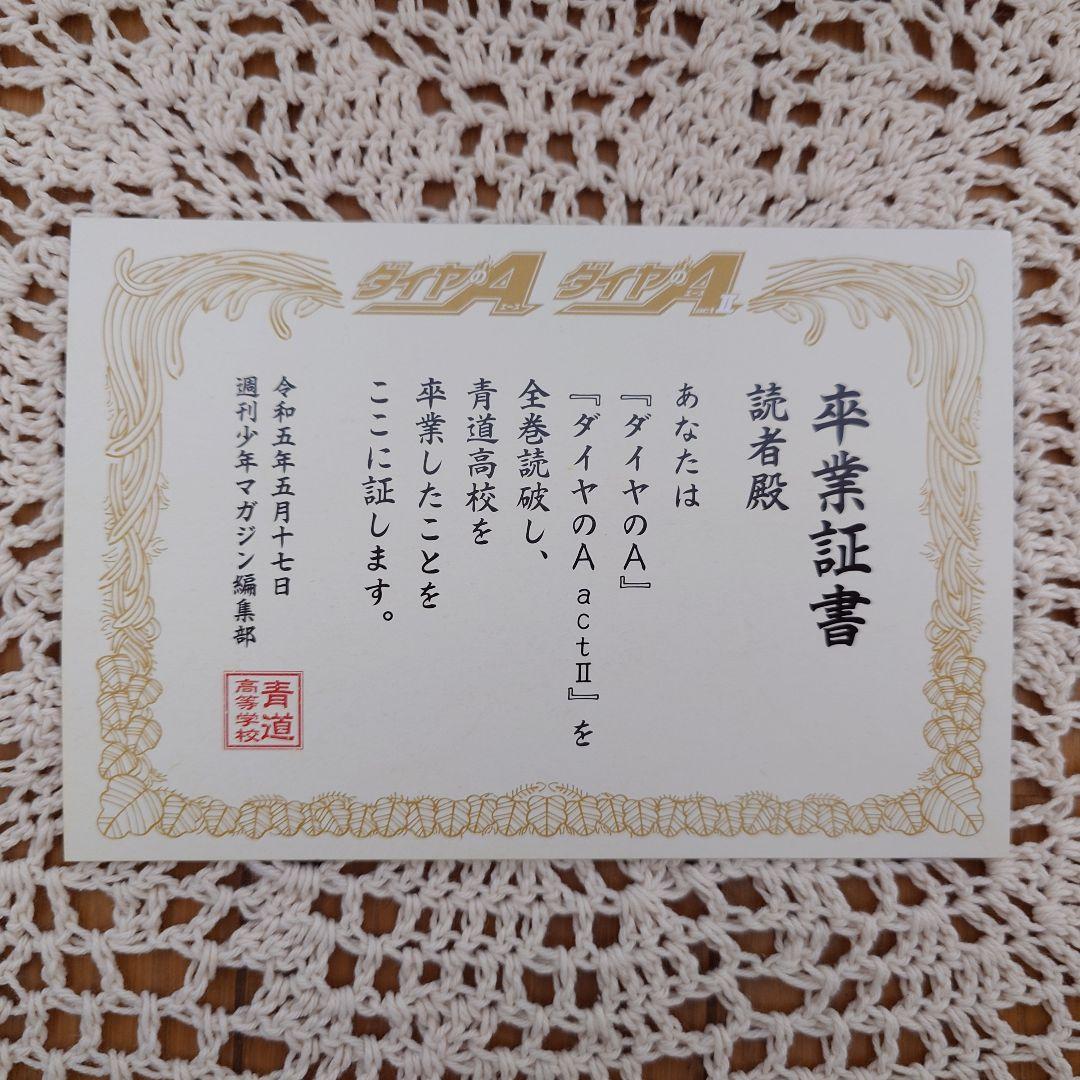 ダイヤのA
エース
ダイヤのA
act II
卒業証書
読者殿
あなたは
『ダイヤのA』
『ダイヤのA actⅡ』を
全巻読破し、
青道高校を
卒業したことを
ここに証します。
令和五年五月十七日
週刊少年マガジン編集部
青道
高等学校